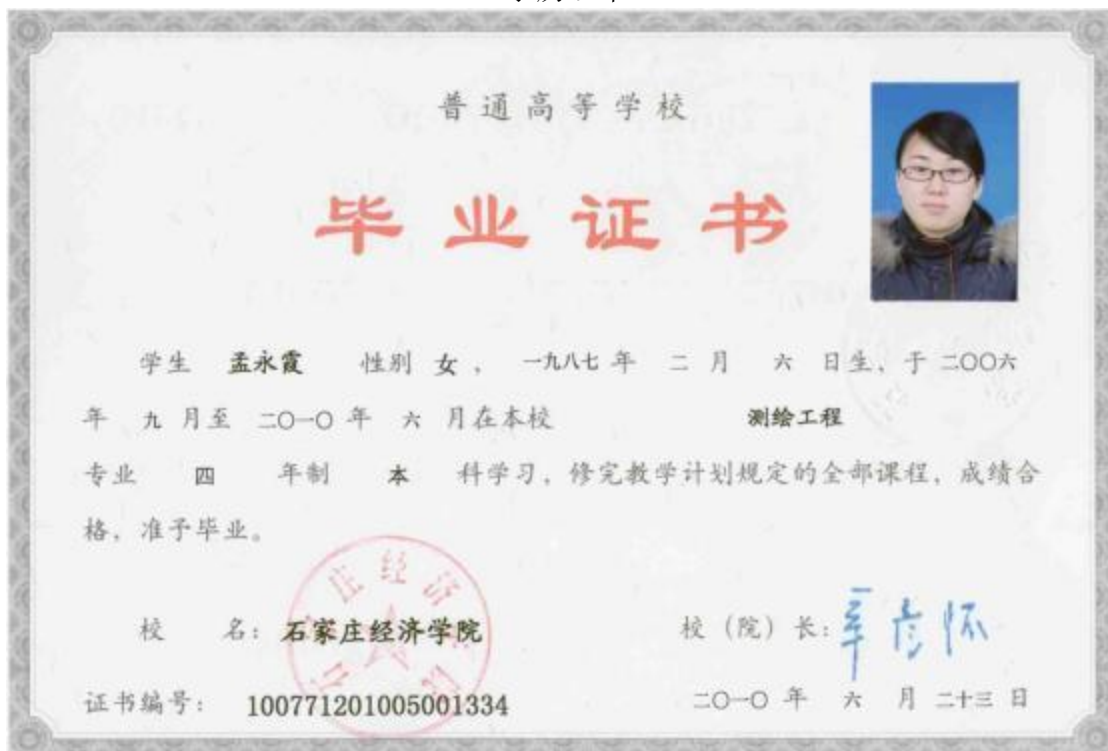 普通高等学校
毕业证书
学生 孟永霞 性别 女， 一九八七 年 二 月 六 日生，于 二〇〇六
年 九 月至 二〇一〇 年 六 月在本校 测绘工程
专业 四 年制 本 科学习，修完教学计划规定的全部课程，成绩合
格，准予毕业。
校 名：石家庄经济学院
校（院）长：
证书编号： 100771201005001334
二〇一〇 年 六 月 二十三 日